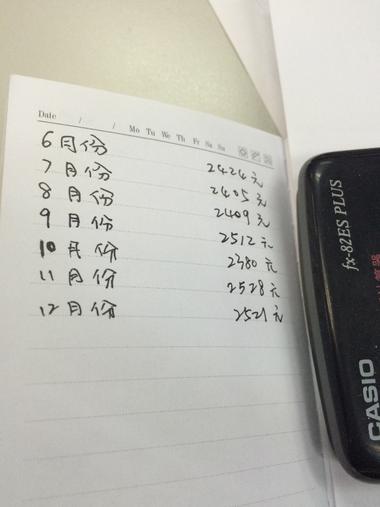 Date / /
Mo Tu We Th Fr Sa Su
6月份 2424元
7月份 2405元
8月份 2409元
9月份 2512元
10月份 2380元
11月份 2528元
12月份 2521元
fx-82ES PLUS
算器
CASIO